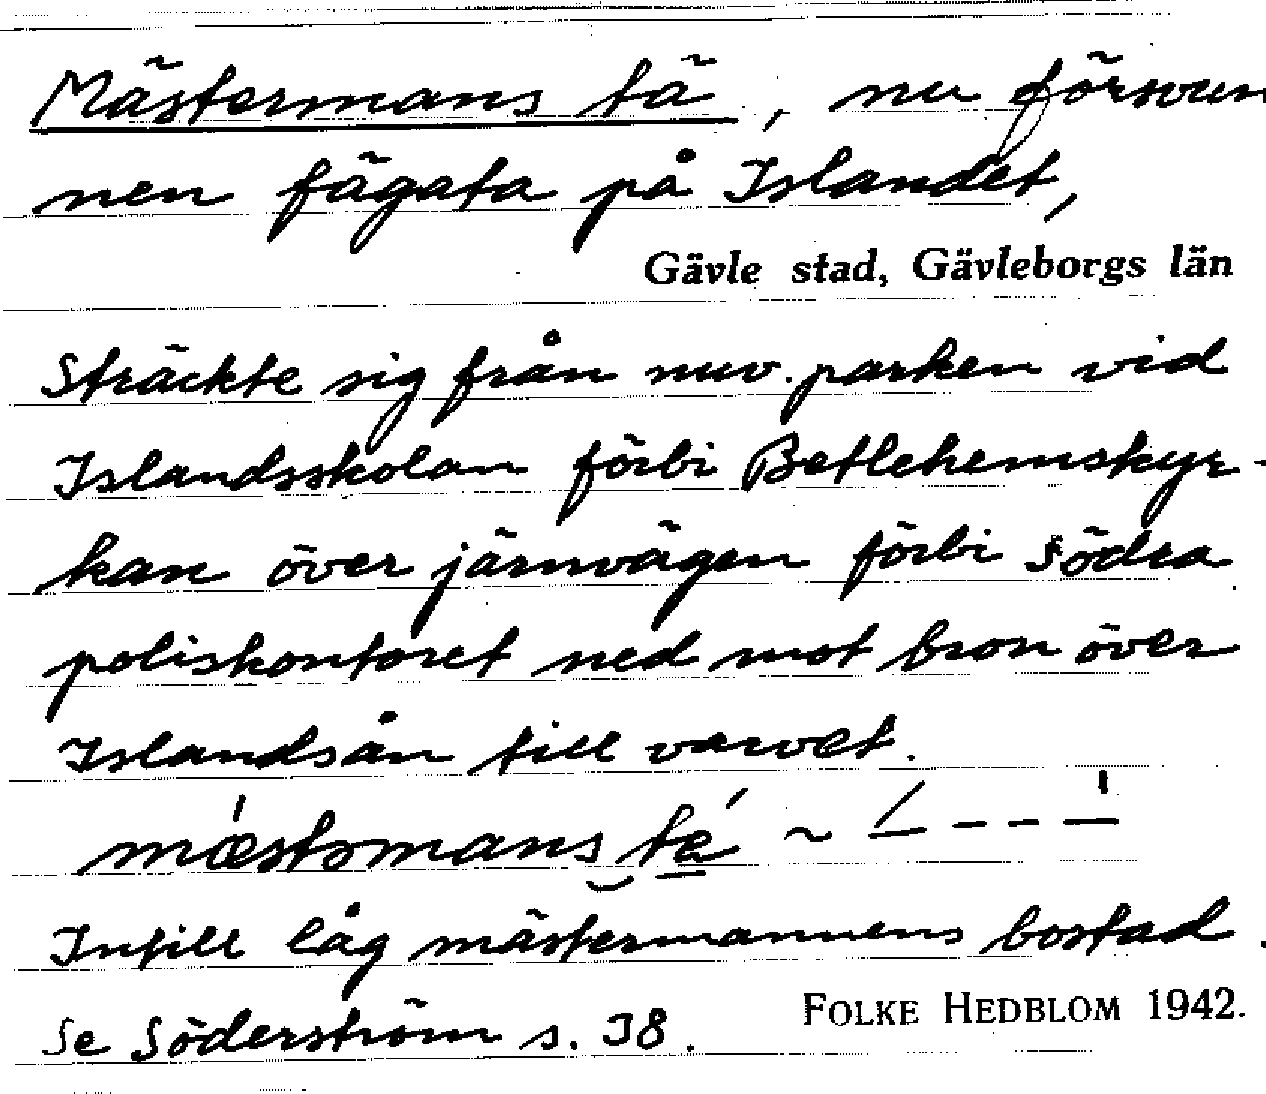 Mästermans tä, nu försvun
nen fägata på Islandet,
Gävle stad, Gävleborgs län
Sträckte sig från nuv. parken vid
Islandsskolan förbi Betlehemskyr-
kan över järnvägen förbi Södra
poliskontoret ned mot bron över
Islandsån till varvet.
Intill låg mästermannens bostad.
Se Söderström s. 38.
FOLKE HEDBLOM 1942.